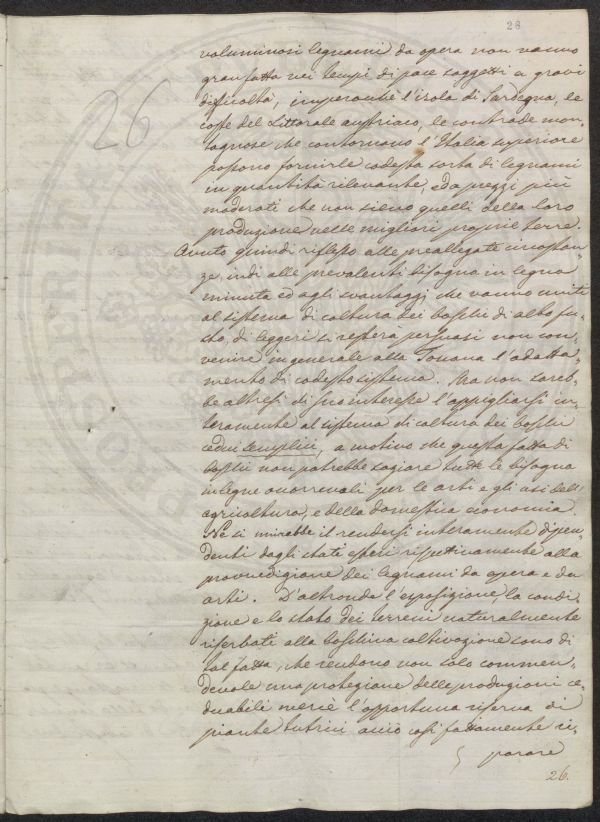 26
26
voluminosi legnami da opera non vanno
gran fatto nei tempi di pace soggetti a gravi
difficoltà, imperocchè l'isola di Sardegna, le
coste del Littorale austriaco, le contrade mon„
tagnose che contornano l'Italia superiore
possono fornirle codesta sorta di legnami
in quantità rilevante, ed a prezzi più
moderati che non sieno quelli della loro
produzione nelle migliori proprie terre.
Avuto quindi riflesso alle preallegate circostan„
ze, indi alle prevalenti bisogna in legna
minuta ed agli svantaggi che vanno uniti
al sistema di coltura dei boschi di alto fu„
sto, di leggeri si resterà persuasi non con„
venire in generale alla Toscana l'adatta„
mento di codesto sistema. Ma non sareb„
be altresì di suo interesse l'appigliarsi in„
teramente al sistema di coltura dei boschi
cedui semplici, a motivo che questa fatta di
boschi non potrebbe sagiare tutte le bisogna
in legne occorrevoli per le arti e gli usi dell'
agricoltura, e della domestica economia.
Nè si mirabbe il rendersi interamente dipen„
denti dagli stati esteri rispettivamente alla
provvedigione dei legnami da opera e da
arti. D'altronde l'esposizione, la condi„
zione e lo stato dei terreni naturalmente
riserbati alla boschiva coltivazione sono di
tal fatta, che rendono non solo commen„
devole una protezione delle produzioni ce„
duabili mercè l'opportuna riserva di
piante tutrici anzi così fattamente ri„
parare
26.